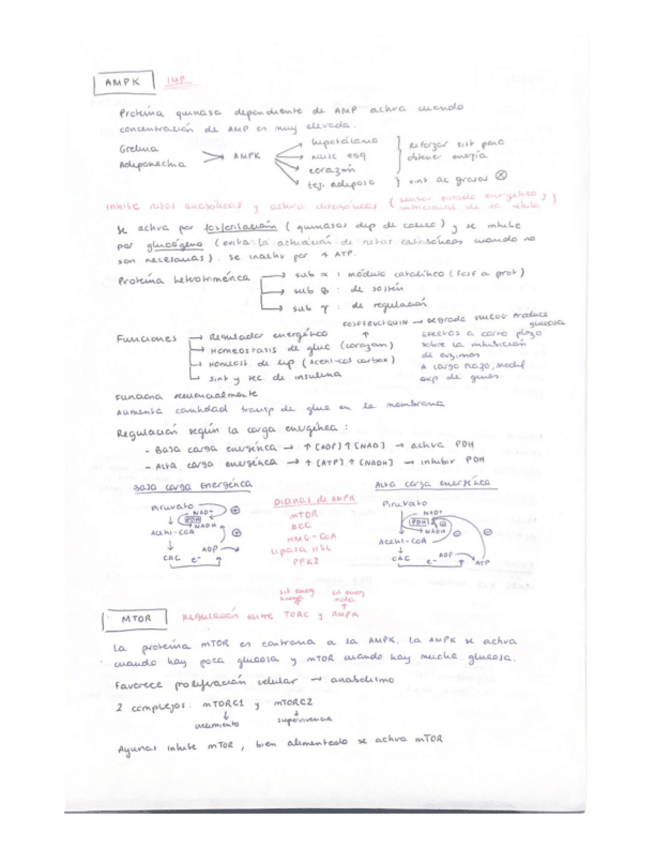 AMPK IMP
Proteína quinasa dependiente de AMP activa cuando
concentración de AMP es muy elevada.
Grelina
Adiponectina
AMPK
hipotálamo
musc esq
corazón
tej. adiposo
Reforzar sist para
obtener energía
sint ac grasos
Inhibe rutas anabólicas y activa catabólicas (sensor estado energético y nutricional de la célula)
Se activa por fosforilación (quinasas dep de calcio) y se inhibe
por glucógeno (evita la activación de rutas catabólicas cuando no
son necesarias). Se inactiv por ↑ ATP.
Proteína heterotrimérica
sub α : módulo catalítico (fosf a prot)
sub β : de sostén
sub γ : de regulación
Funciones
→ Regulador energético
→ Homeostasis de gluc (corazón)
→ Homeost de lip (Acetil-coA carbox)
→ Sint y sec de insulina
degrade produce
glucosa
Efectos a corto plazo
sobre la inhibición
de enzimas
A largo plazo, modif
exp de genes
Funciona secuencialmente
Aumenta cantidad transp de gluc en la membrana
Regulación según la carga energética :
- Baja carga energética → ↑ [ADP] ↑ [NAD] → activa PDH
- Alta carga energética → ↑ [ATP] ↑ [NADH] → inhibir PDH
Baja carga energética
Piruvato
NAD+
PDH
NADH
Acetil-CoA
ADP
CAC e-
Dianas de AMPK
mTOR
ACC
HMG-CoA
Lipasa HSL
PFK2
Alta carga energética
Piruvato
NAD+
PDH
NADH
Acetil-CoA
ADP
ATP
CAC e-
MTOR Regulación entre TORC y AMPK
La proteína mTOR es contraria a la AMPK. La AMPK se activa
cuando hay poca glucosa y mTOR cuando hay mucha glucosa.
Favorece proliferación celular → anabolismo
2 complejos: mTORC1 y mTORC2
crecimiento supervivencia
Ayunas inhibe mTOR, bien alimentado se activa mTOR